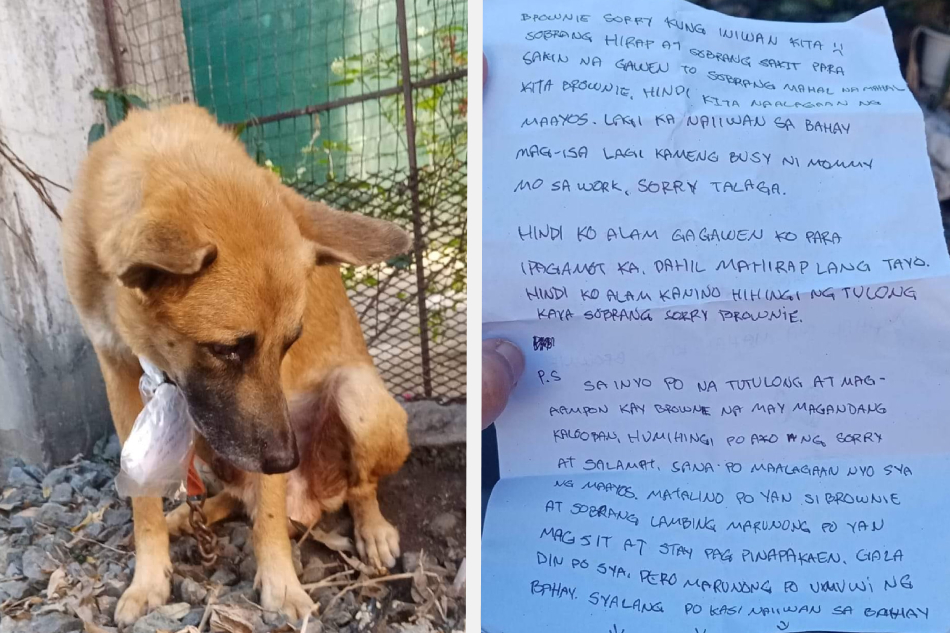 BROWNIE SORRY KUNG INIWAN KITA :(
SOBRANG HIRAP AT SOBRANG SAKIT PARA
SAKIN NA GAWEN TO SOBRANG MAHAL NA MAHAL
KITA BROWNIE. HINDI KITA NAALAGAAN NG
MAAYOS. LAGI KA NAIIWAN SA BAHAY
MAG-ISA LAGI KAMENG BUSY NI MOMMY
MO SA WORK, SORRY TALAGA.
HINDI KO ALAM GAGAWEN KO PARA
IPAGAMOT KA. DAHIL MAHIRAP LANG TAYO.
HINDI KO ALAM KANINO HIHINGI NG TULONG
KAYA SOBRANG SORRY BROWNIE.
P.S SA INYO PO NA TUTULONG AT MAG-
AAMPON KAY BROWNIE NA MAY MAGANDANG
KALOOBAN, HUMIHINGI PO AKO NG SORRY
AT SALAMAT. SANA PO MAALAGAAN NYO SYA
NG MAAYOS. MATALINO PO YAN SI BROWNIE
AT SOBRANG LAMBING MARUNONG PO YAN
MAG SIT AT STAY PAG PINAPAKAEN. GALA
DIN PO SYA, PERO MARUNONG PO UMUWI NG
BAHAY. SYALANG PO KASI NAIIWAN SA BAHAY